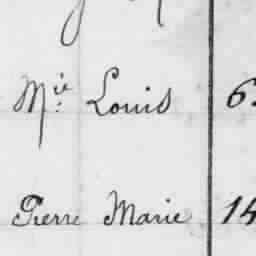 Mie. Louis 6
Pierre Marie 14